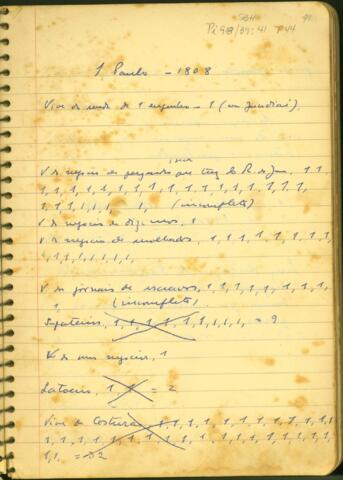 SBH
Pi 98/39:41 P44
91.
S. Paulo - 1808
Vive de renda de 1 engenho - 1 (em Jundiaí)
seus
V de negocio de que traz do R. de Jan, 1 1
1, 1, 1, 1, 1, 1, 1, 1, 1, 1, 1, 1, 1, 1, 1, 1,
1, 1, 1, 1, 1, 1, 1, (incompleto)
V de negocio de 1
V de negocio de molhados, 1, 1, 1, 1, 1, 1, 1, 1,
1, 1, 1, 1, 1, 1, 1,
V de jornais de escravos, 1, 1, 1, 1, 1, 1, 1, 1,
1, (incompleto)
Sapateiro, 1, 1, 1, 1, 1, 1, 1, 1, 1, = 9
V de seus negocios, 1
Latoeiro, 1, 1 = 2
Vive de costuras, 1, 1, 1, 1, 1, 1, 1, 1, 1, 1, 1, 1,
1, 1, 1, 1, 1, 1, 1, 1, 1, 1, 1, 1, 1, 1, 1, 1,
1, 1, = 32